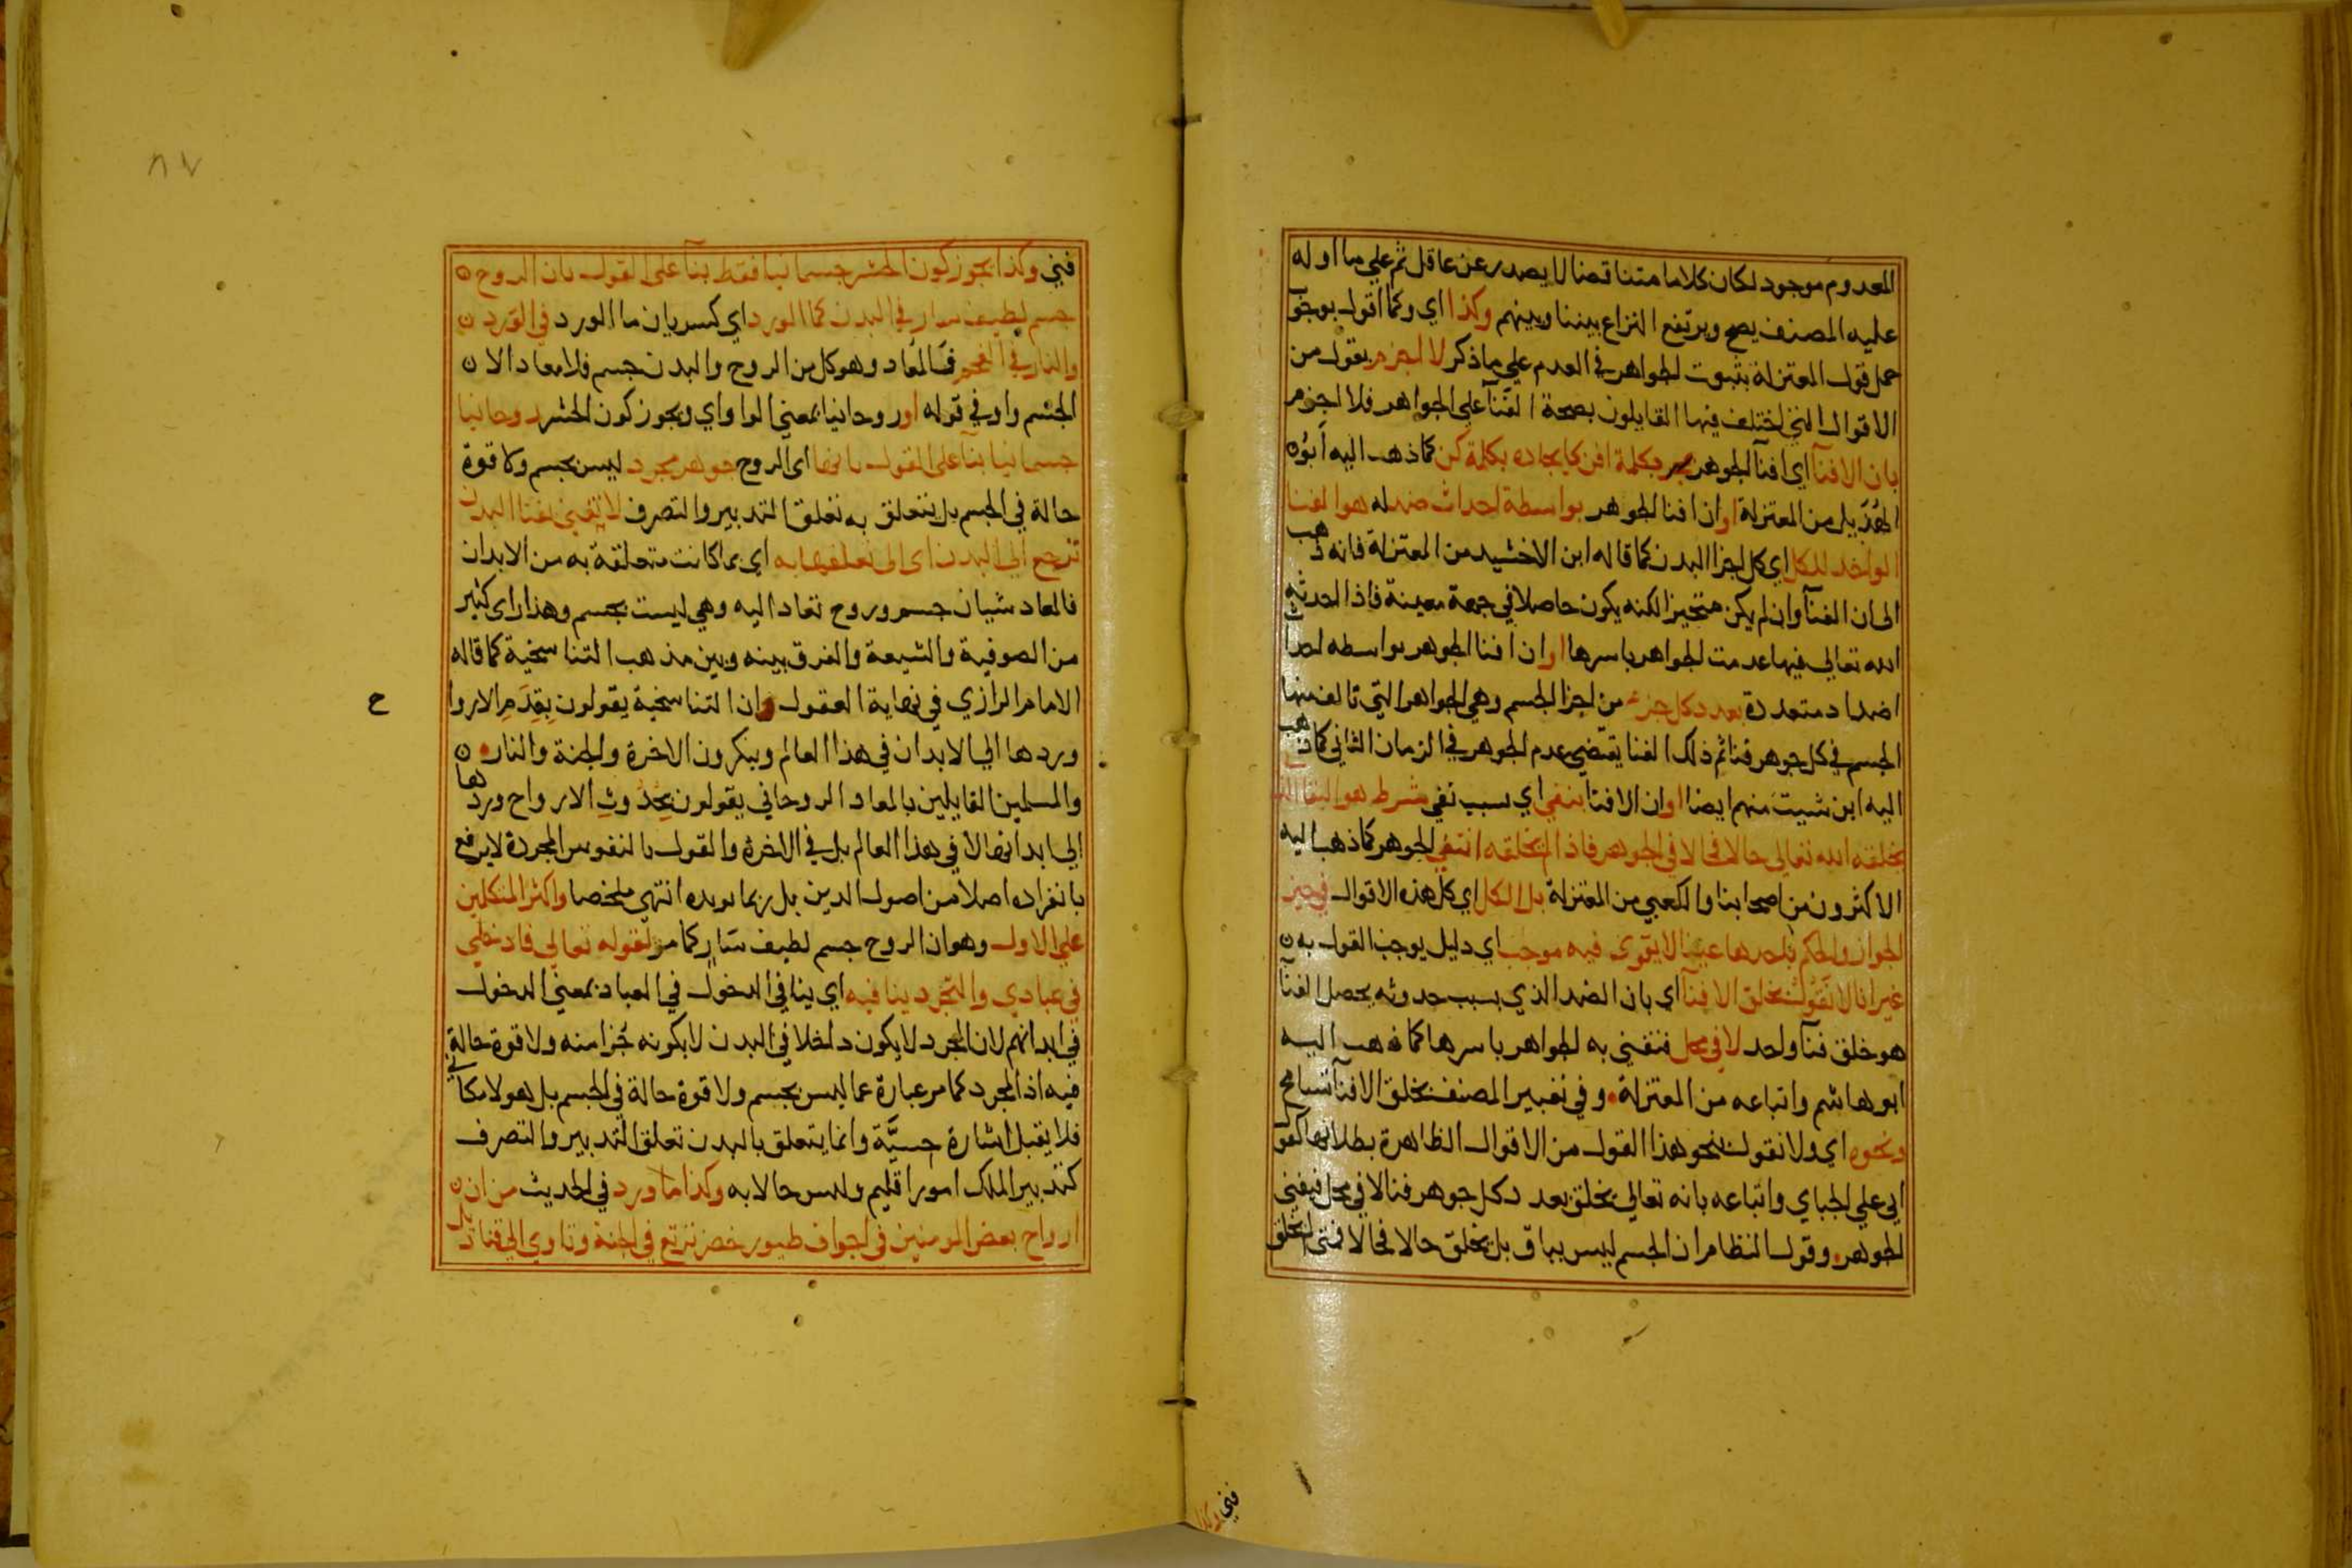 المعدوم موجود لكان كلاما متناقضا لا يصدر عن عاقل ثم علي ما اوله
عليه المصنف يصح ويرتفع النزاع بيننا وبينهم وكذا اي وكما اقول بوجوب
حمل قول المعتزلة بثبوت الجواهر في العدم علي ما ذكر لا اجزم بقول من
الاقوال التي اختلف فيها القايلون بصحة الفنآ علي الجواهر فلا اجزم
بان الافنآ اي افنآ الجوهر بكلمة افن كايجاده بكلمة كن كما ذهب اليه ابو
الهذيل من المعتزلة او ان افنا الجوهر بواسطة احداث ضد له هو الفنا
الواحد للكل اي كل اجزا البدن كما قاله ابن الاخشيد من المعتزلة فانه ذهب
الى ان الفنآ وان لم يكن متحيزا لكنه يكون حاصلا في جهة معينة فاذا احدثه
الله تعالي فيها عدمت الجواهر باسرها او ان افنا الجوهر بواسطه احداث
اضداد متعددة بعدد كل جزء من اجزا الجسم وهي الجواهر التي تالف منها
الجسم في كل جوهر فنا ثم ذلك الفنا يقتضي عدم الجوهر في الزمان الثاني كما ذهب
اليه ابن شبيب منهم ايضا او ان الافنا بنفي اي بسبب نفي شرط هو البقا الذي
يخلقه الله تعالي حالا فحالا في الجوهر فاذا لم يخلقه انتفي الجوهر كما ذهب اليه
الاكثرون من اصحابنا والكعبي من المعتزلة بل الكل اي كل هذه الاقوال في حيز
الجواز والحكم باحدها عينا لا يقوى فيه موجب اي دليل يوجب القول به
غير انا لا نقول بخلق الافنآ اي بان الضد الذي بسبب حدوثه يحصل الفنآ
هو خلق فنآ واحد لا في محل فتفني به الجواهر باسرها كما ذهب اليه
ابو هاشم واتباعه من المعتزلة وفي تعبير المصنف بخلق الافنآ تسامح
ونحوه اي ولا نقول بنحو هذا القول من الاقوال الظاهرة بطلانها كقول
ابي علي الجباي واتباعه بانه تعالي يخلق بعدد كل جوهر فنا لا في محل فيفني
الجوهر وقول النظام ان الجسم ليس بباق بل يخلق حالا فحالا فمتى لم يخلق
فني وكذا
٨٧
فني وكذا يجوز كون الحشر جسمانيا فقط بنآ علي القول بان الروح
جسم لطيف سار في البدن كما الورد اي كسريان ما الورد في الورد
والنار في الفحم فالمعاد وهو كل من الروح والبدن جسم فلا معاد الا
الجسم واو في قوله او روحانيا بمعني الواو اي ويجوز كون الحشر روحانيا
جسمانيا بنآ علي القول بانها اى الروح جوهر مجرد ليس بجسم ولا قوة
حالة في الجسم بل يتعلق به تعلق التدبير والتصرف لا تفني بفنا البدن
ترجع الي البدن اى الى تعلقها به اي بما كانت متعلقة به من الابدان
فالمعاد شيان جسم وروح تعاد اليه وهي ليست بجسم وهذا راى كثير
من الصوفية والشيعة والفرق بينه وبين مذهب التناسخية كما قاله
الامام الرازي في نهاية العقول ان التناسخية يقولون بقدم الاروا
ح
وردها الي الابدان في هذا العالم وينكرون الاخرة والجنة والنار
والمسلمين القايلين بالمعاد الروحاني يقولون بحدوث الارواح وردها
الي ابدانها لا في هذا العالم بل في الاخرة والقول بالنفوس المجردة لا يرفع
بانفراده اصلا من اصول الدين بل ربما يويده انتهي ملخصا واكثر المتكلمين
علي الاول وهو ان الروح جسم لطيف سار كما مر لقوله تعالي فادخلي
في عبادي والتجرد ينافيه اي ينافي الدخول في العباد بمعني الدخول
في ابدانهم لان المجرد لا يكون داخلا في البدن لا بكونه جزا منه ولا قوة حالة
فيه اذ المجرد كما مر عبارة عما ليس بجسم ولا قوة حالة في الجسم بل هو لا مكاني
فلا يقبل اشارة حسية وانما يتعلق بالبدن تعلق التدبير والتصرف
كتدبير الملك امور اقليم وليس حالا به وكذا ما ورد في الحديث من ان
ارواح بعض المومنين في اجواف طيور خضر ترتع في الجنة وتاوي الي قناديل